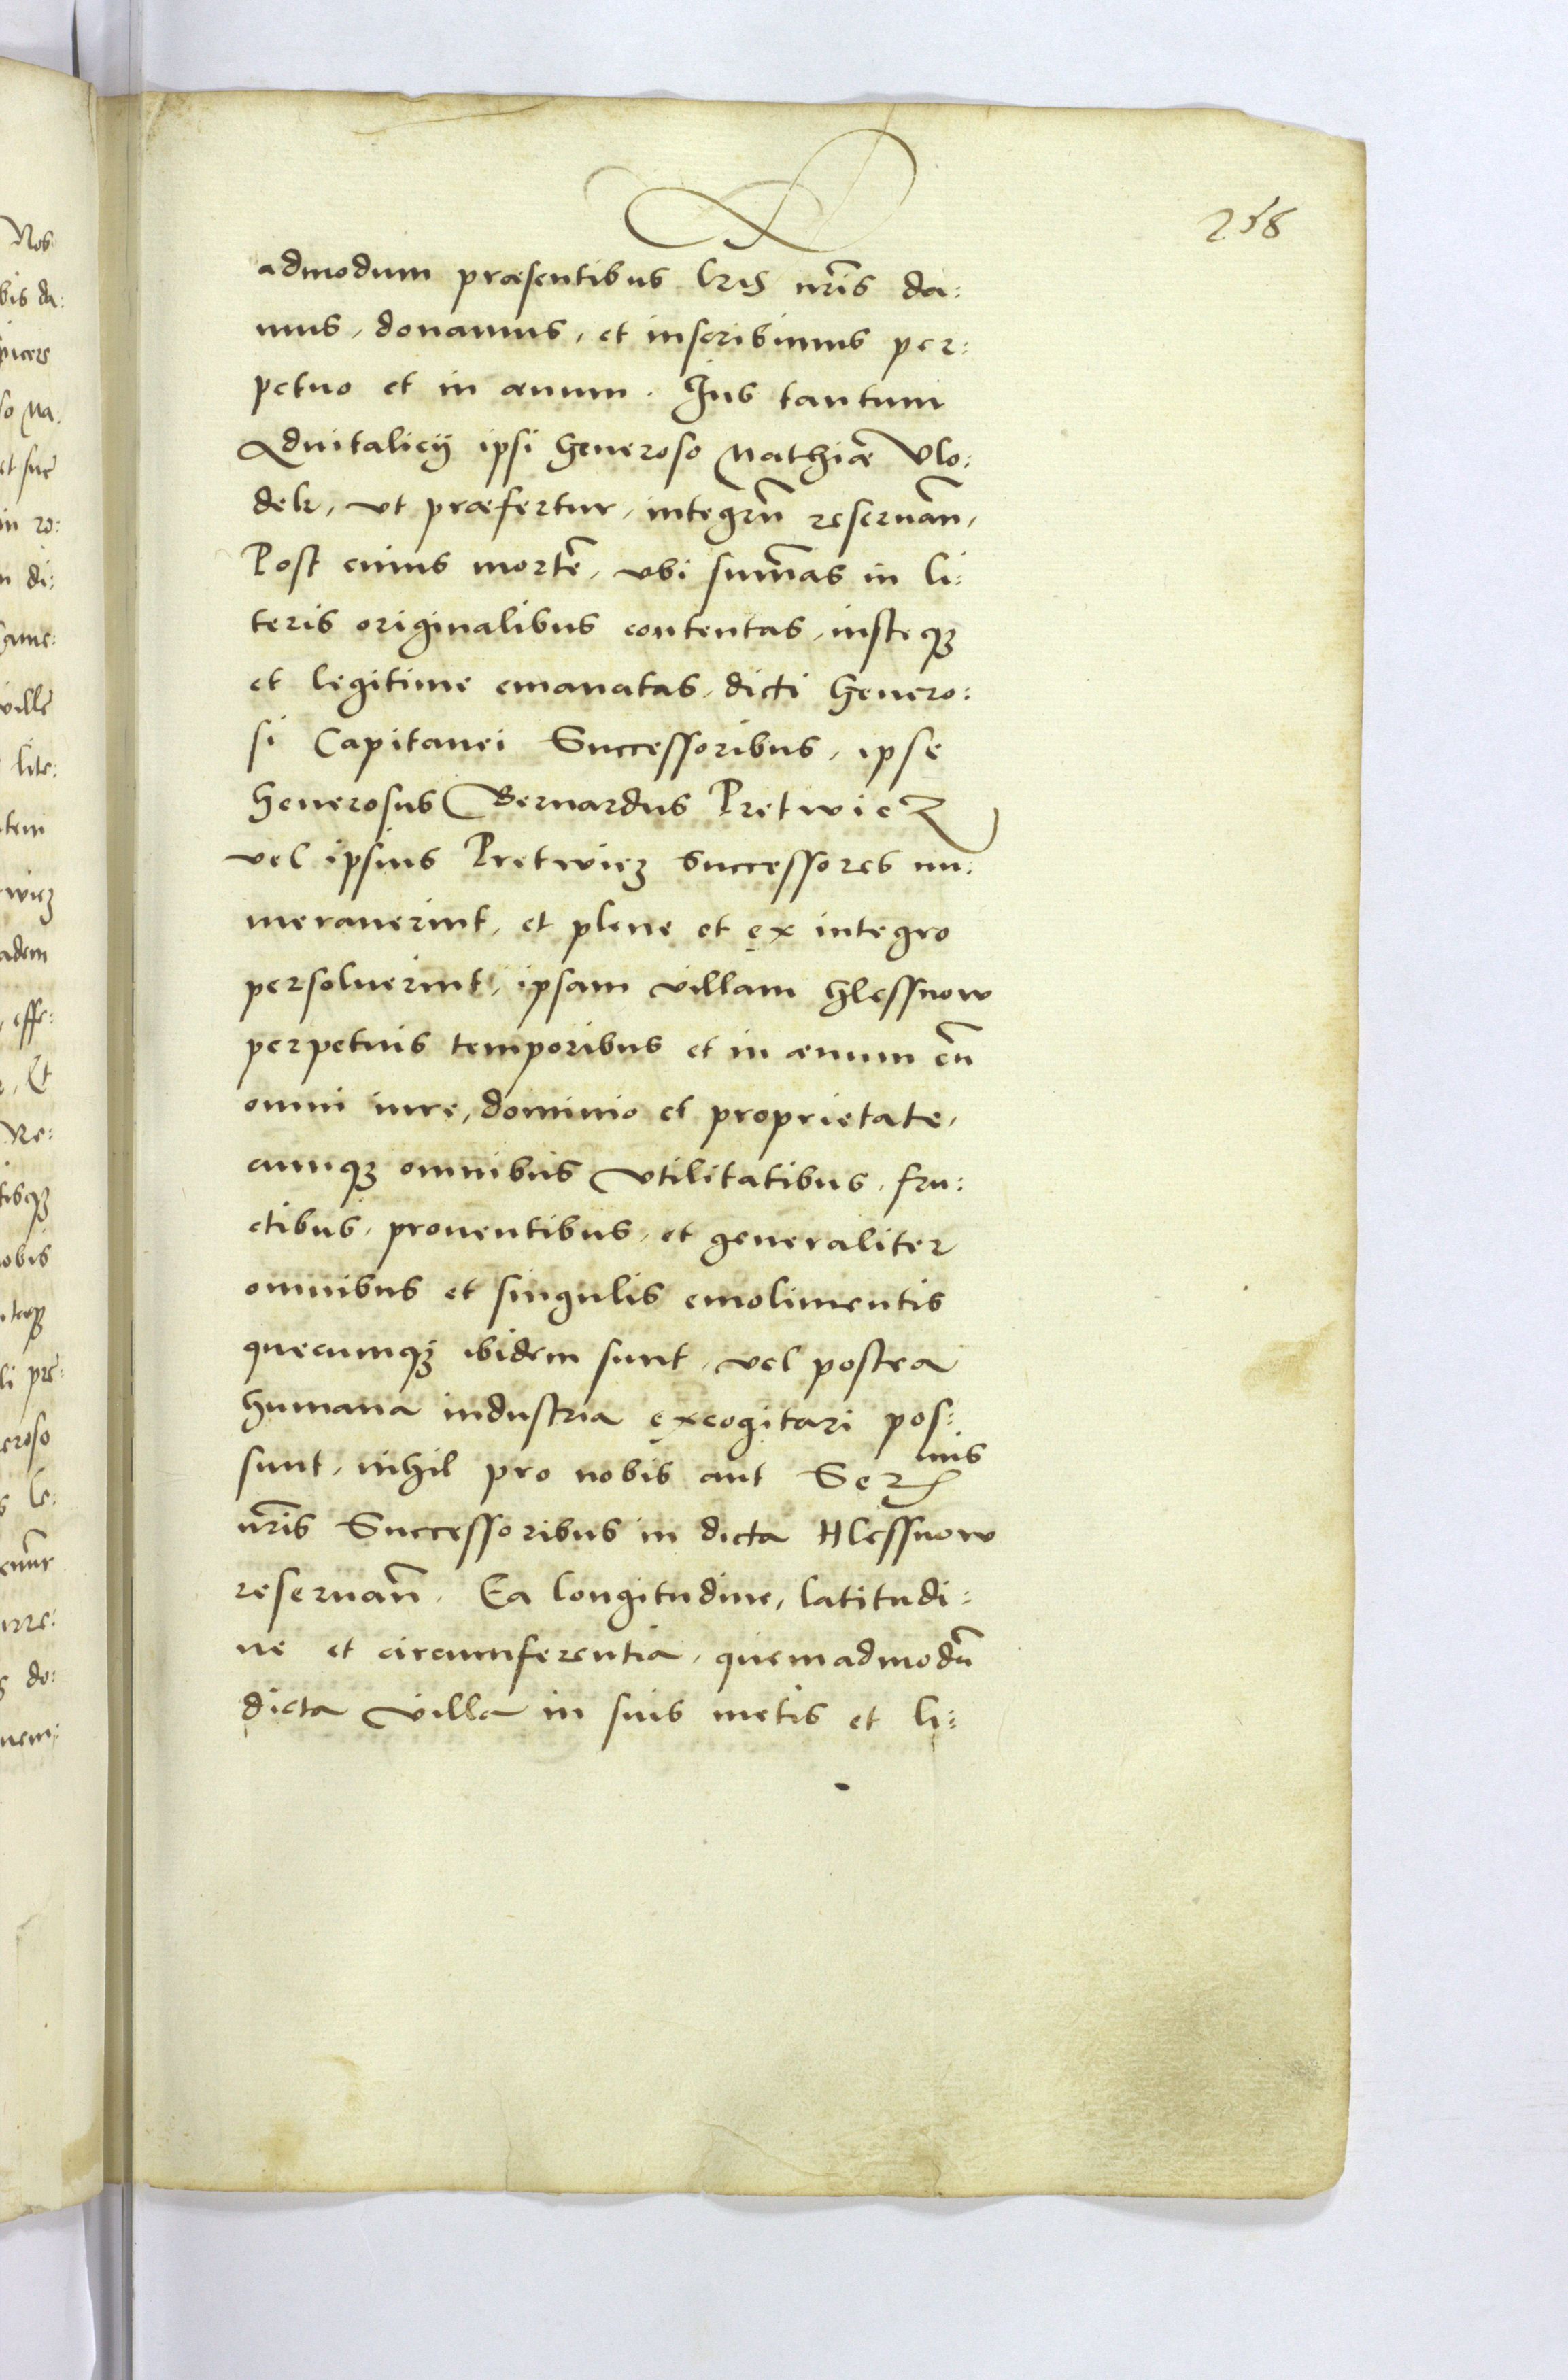 258
admodum præsentibus lris nris da:
mus, donamus, et inscribimus per:
petuo et in æuum. Jus tantum
Aduitalicÿ ipsi Generoso Mathiæ Vlo:
dek, vt præfertur, integrũ reseruañ,
Post cuius mortẽ, vbi sum̃as in li:
teris originalibus contentas, insteq3
et legitime emanatas, dicti Genero:
si Capitanei Successoribus, ipse
Generosus Bernardus Pretwicz
vel ipsius Pretwicz successores nu:
merauerint, et plene et ex integro
persoluerint, ipsam villam Hlessnow
perpetuis temporibus et in æuum cũ
omni iure, dominio et proprietate,
cumq3 omnibus vtilitatibus, fru:
ctibus, prouentibus, et generaliter
omnibus et singulis emolimentis
quecumq3 ibidem sunt, vel postea
humana industria excogitari pos:
sunt, nihil pro nobis aut Ser mis
nris Successoribus in dicta Hlessnow
reseruañ. Ea longitudine, latitudi:
ne et circumferentia, quemadmodũ
dicta villa in suis metis et li:
Nos
bis da:
picere
so Ma:
et sue
in ro:
di:
ville
lite:
tem
wicz
adem
effe:
Et
Ne:
tisq3
obis
li pre:
eroso
le:
do:
nem: